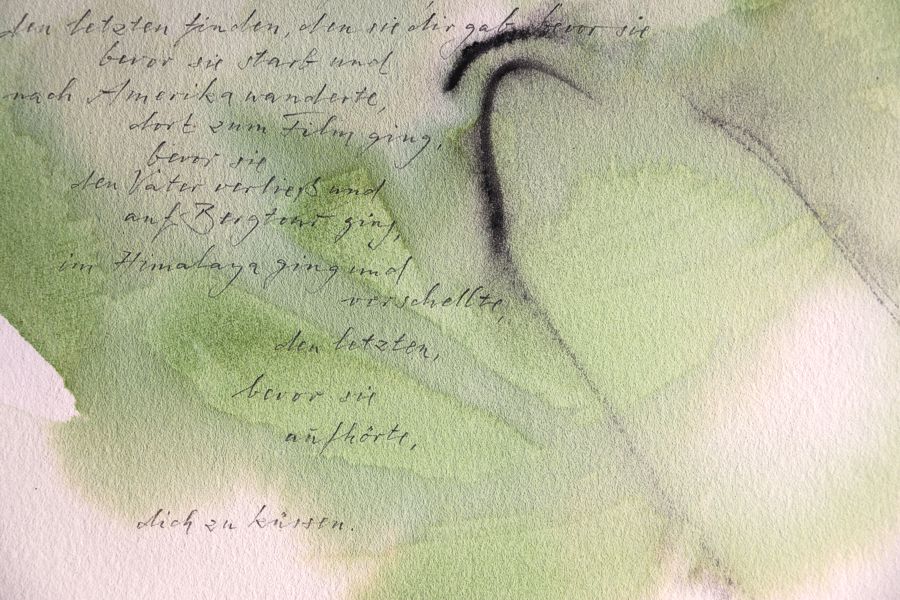 den letzten finden den sie dir gab, bevor sie
bevor sie starb und
nach Amerika wanderte,
dort zum Film ging,
bevor sie
den Vater verließ und
auf Bergtour ging,
im Himalaya ging und
verschellte,
den letzten,
bevor sie
aufhörte,
dich zu küssen.